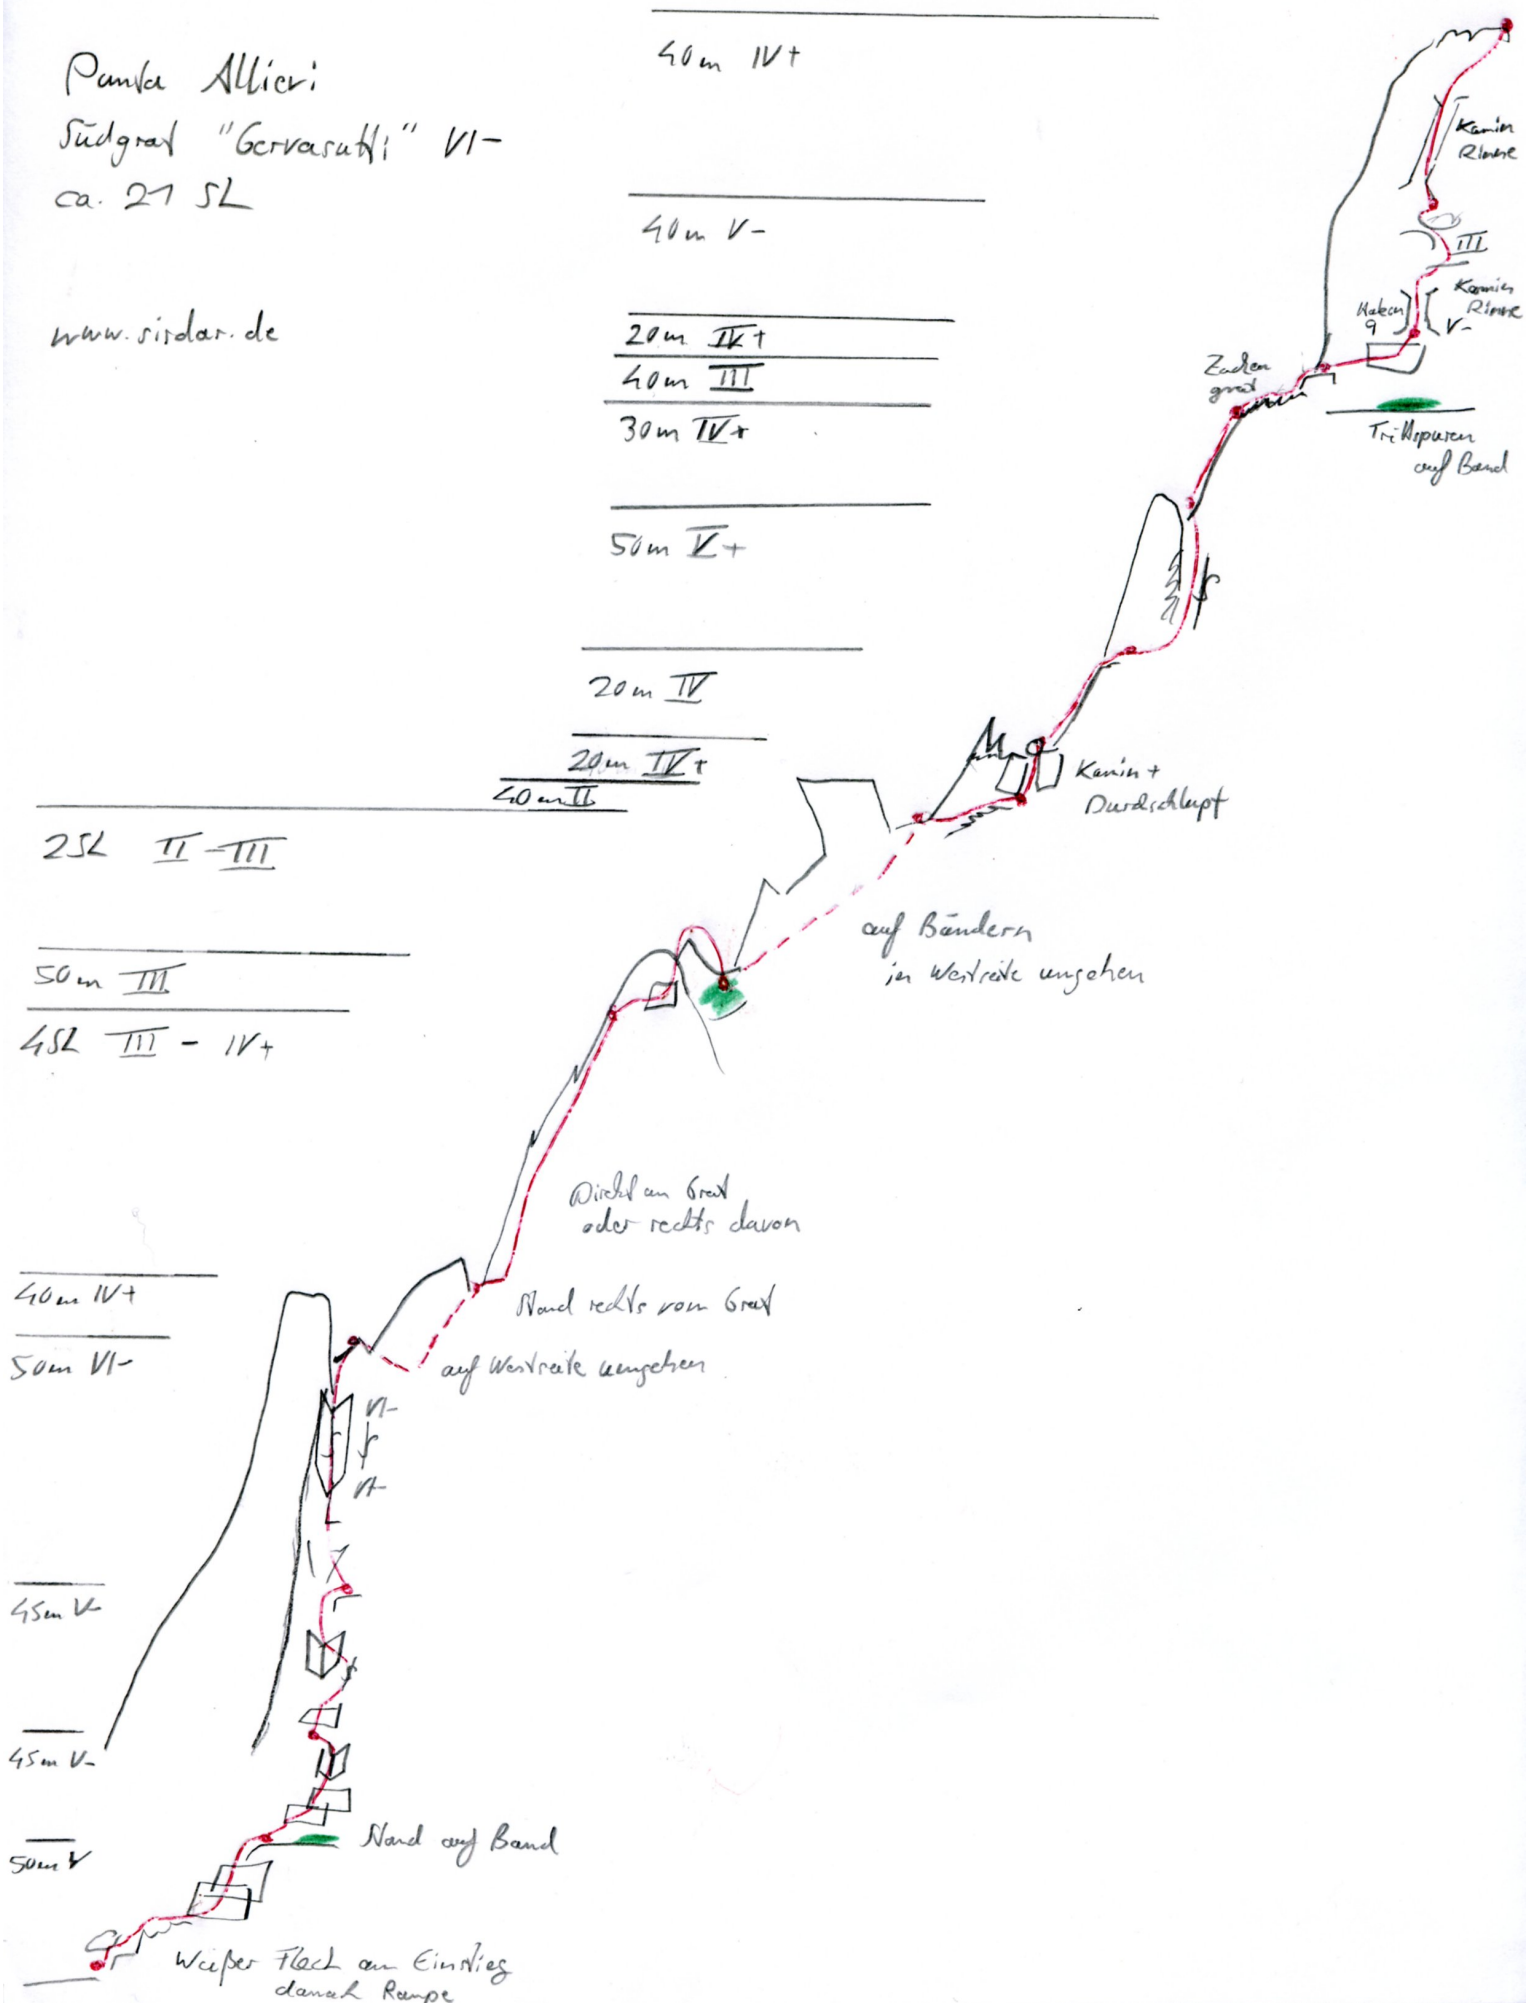 Punta Allieri
Südgrat "Gervasutti" VI-
ca. 21 SL
www.sirdar.de
40m IV+
40m V-
20m IV+
40m III
30m IV+
50m V+
20m IV
20m IV+
40m II
2SL II-III
50m III
4SL III - IV+
40m IV+
50m VI-
45m V-
45m V-
50m V
Kamin
Rinne
III
Kamin
Rinne
V-
Haken
9
Zacken
grat
Trittspuren
auf Band
Kamin +
Durchschlupf
auf Bändern
in Westseite umgehen
Direkt am Grat
oder rechts davon
Stand rechts vom Grat
auf Westseite umgehen
VI-
VI-
Stand auf Band
Weißer Fleck am Einstieg
danach Rampe